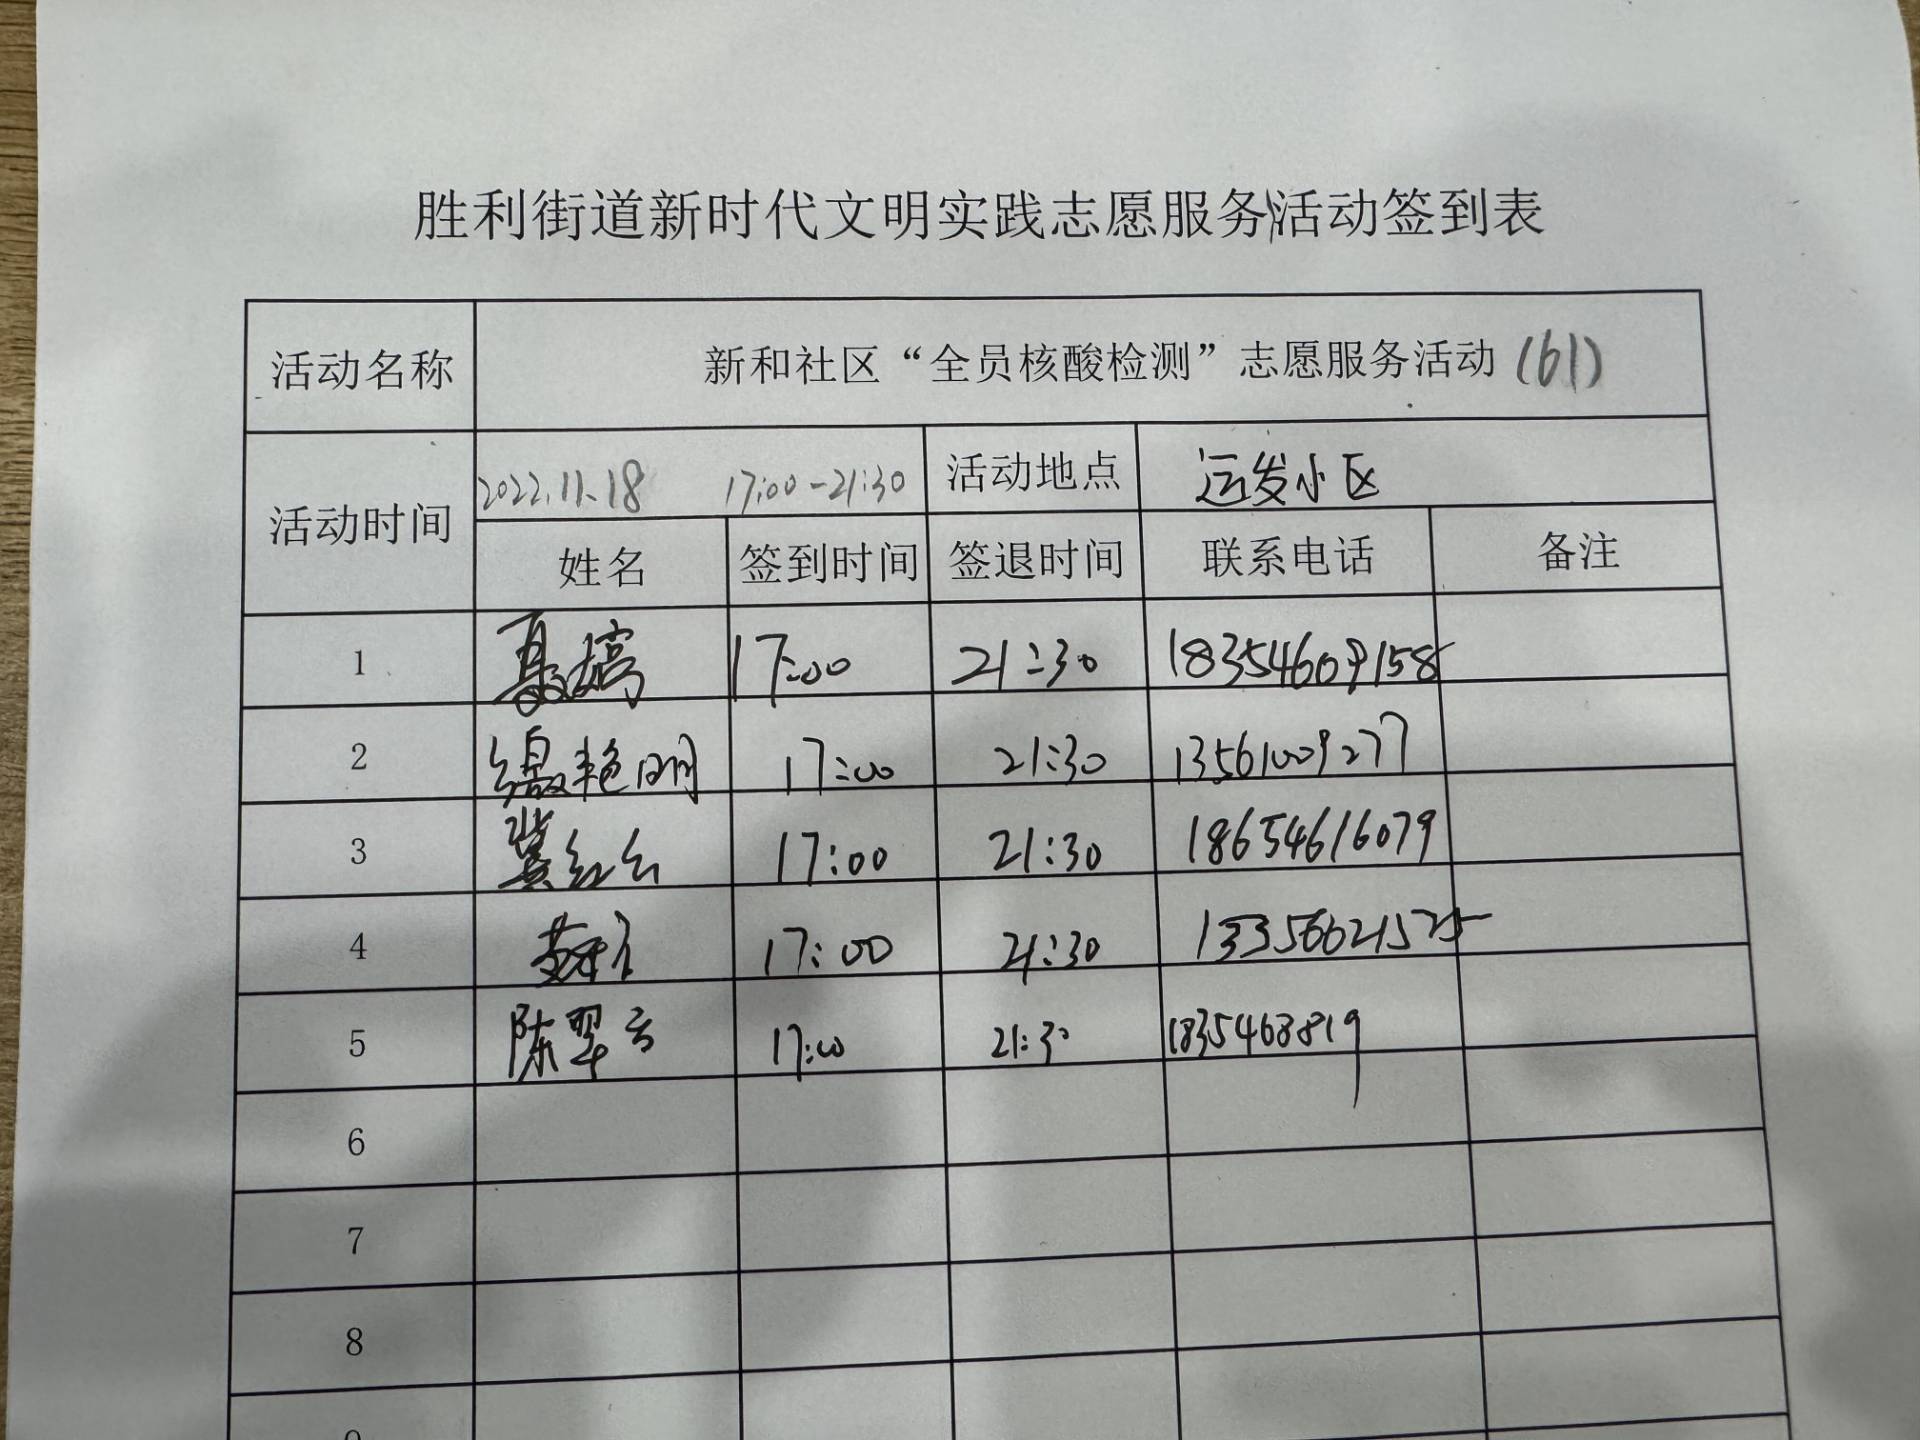 胜利街道新时代文明实践志愿服务活动签到表
活动名称 新和社区“全员核酸检测”志愿服务活动 (61)
活动时间 2022.11.18 17:00-21:30 活动地点 运发小区
姓名 签到时间 签退时间 联系电话 备注
1 17:00 21:30 18354609158
2 缪艳明 17:00 21:30 13561009277
3 冀红云 17:00 21:30 18654616079
4 17:00 21:30 13356621525
5 陈翠云 17:00 21:30 1835468819
6
7
8